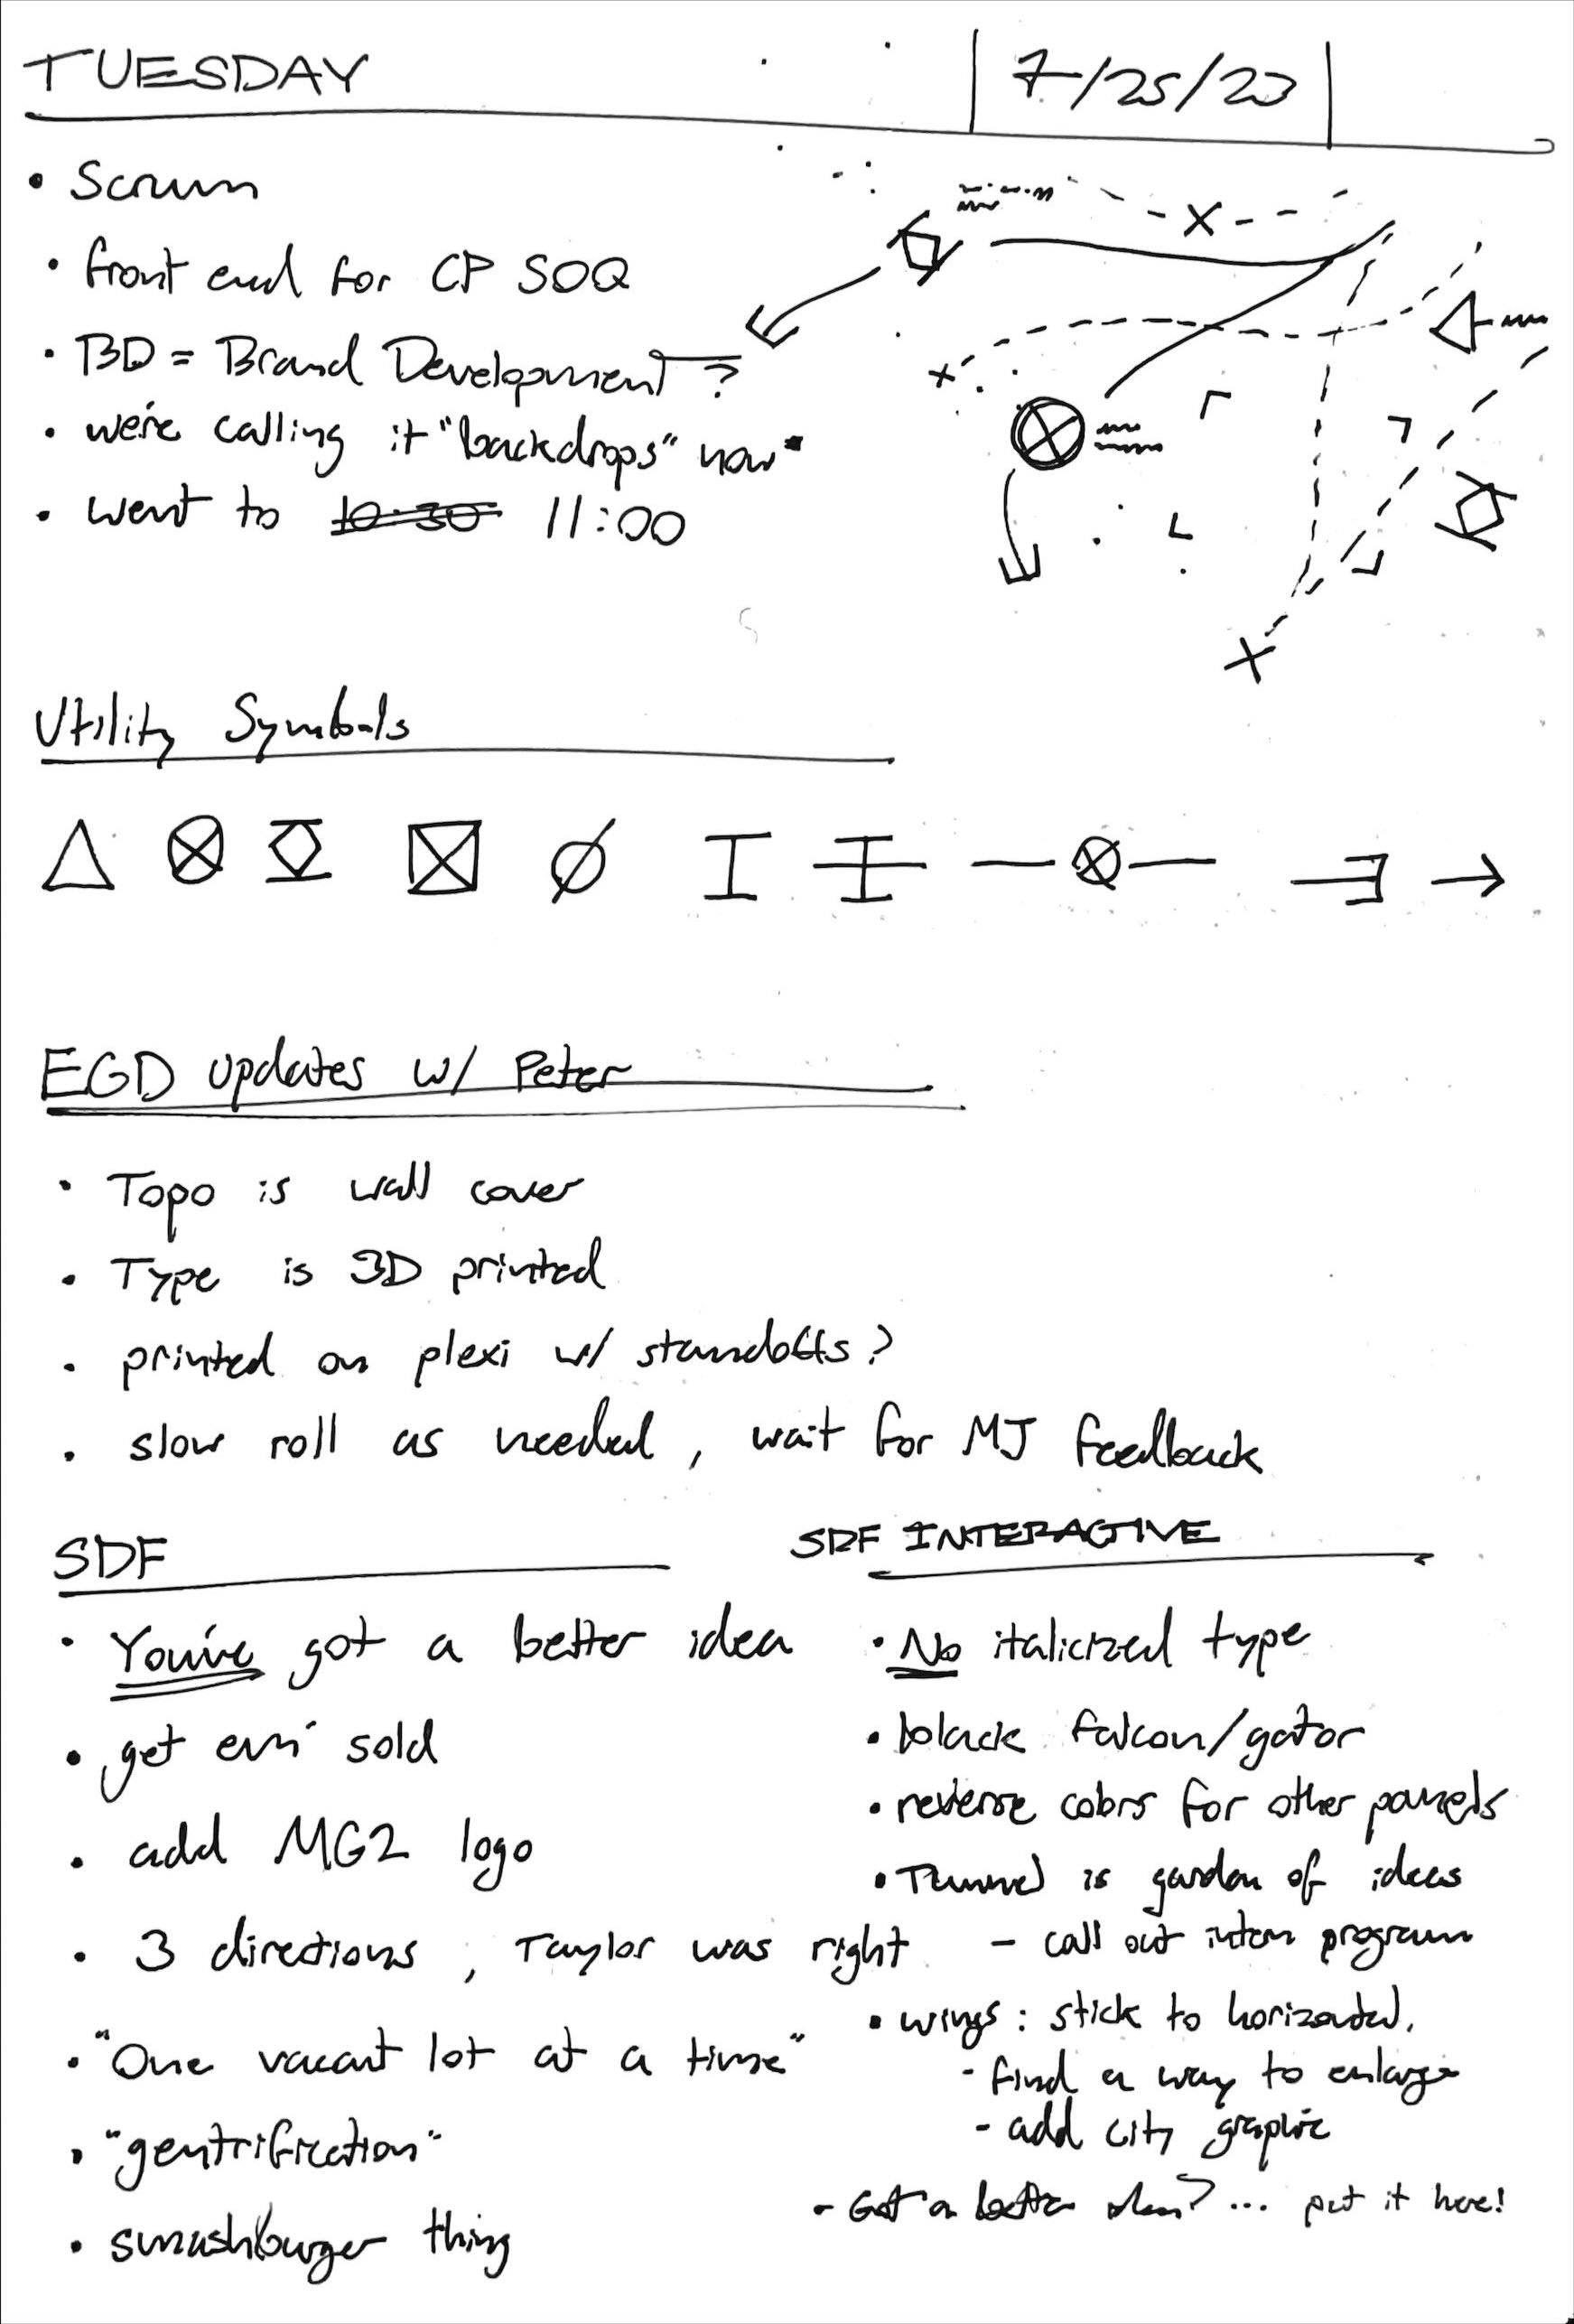 TUESDAY
7/25/23
• Scrum
• front end for CP SOQ
• BD = Brand Development?
• we're calling it "backdrops" now
• went to 10:30 11:00
Utility Symbols
EGD updates w/ Peter
• Topo is wall cover
• Type is 3D printed
• printed on plexi w/ standoffs?
• slow roll as needed, wait for MJ feedback
SDF
• You've got a better idea
• get em' sold
• add MG2 logo
• 3 directions, Taylor was right
• "One vacant lot at a time"
• "gentrification"
• smashburger thing
SDF INTERACTIVE
• No italicized type
• black falcon/gator
• reverse colors for other panels
• Tunnel is garden of ideas
- call out intern program
• wings: stick to horizontal.
- find a way to enlarge
- add city graphic
- Got a better idea? ... put it here!